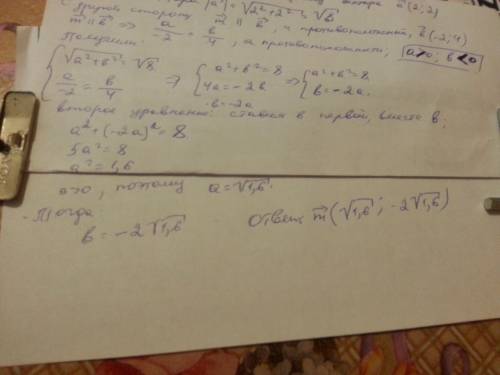 вектора a⃗(2;2) |a⃗| = √2²+2² = √8.
С другой стороны
m⃗ ∥ b⃗ => a/-2 = b/4, и противоположный, b⃗(-2;4)
Получим: m⃗ ∥ b⃗, и противоположный; a>0; b<0
{√a²+b² = √8, a/-2 = b/4 => {a²+b²=8, 4a=-2b => {a²+b²=8, b=-2a.
b=-2a
второе уравнение ставим в первой, вместо b;
a²+(-2a)²=8
5a²=8
a²=1,6
a>0, поэтому a=√1,6.
Тогда
b=-2√1,6
Ответ m⃗(√1,6; -2√1,6)